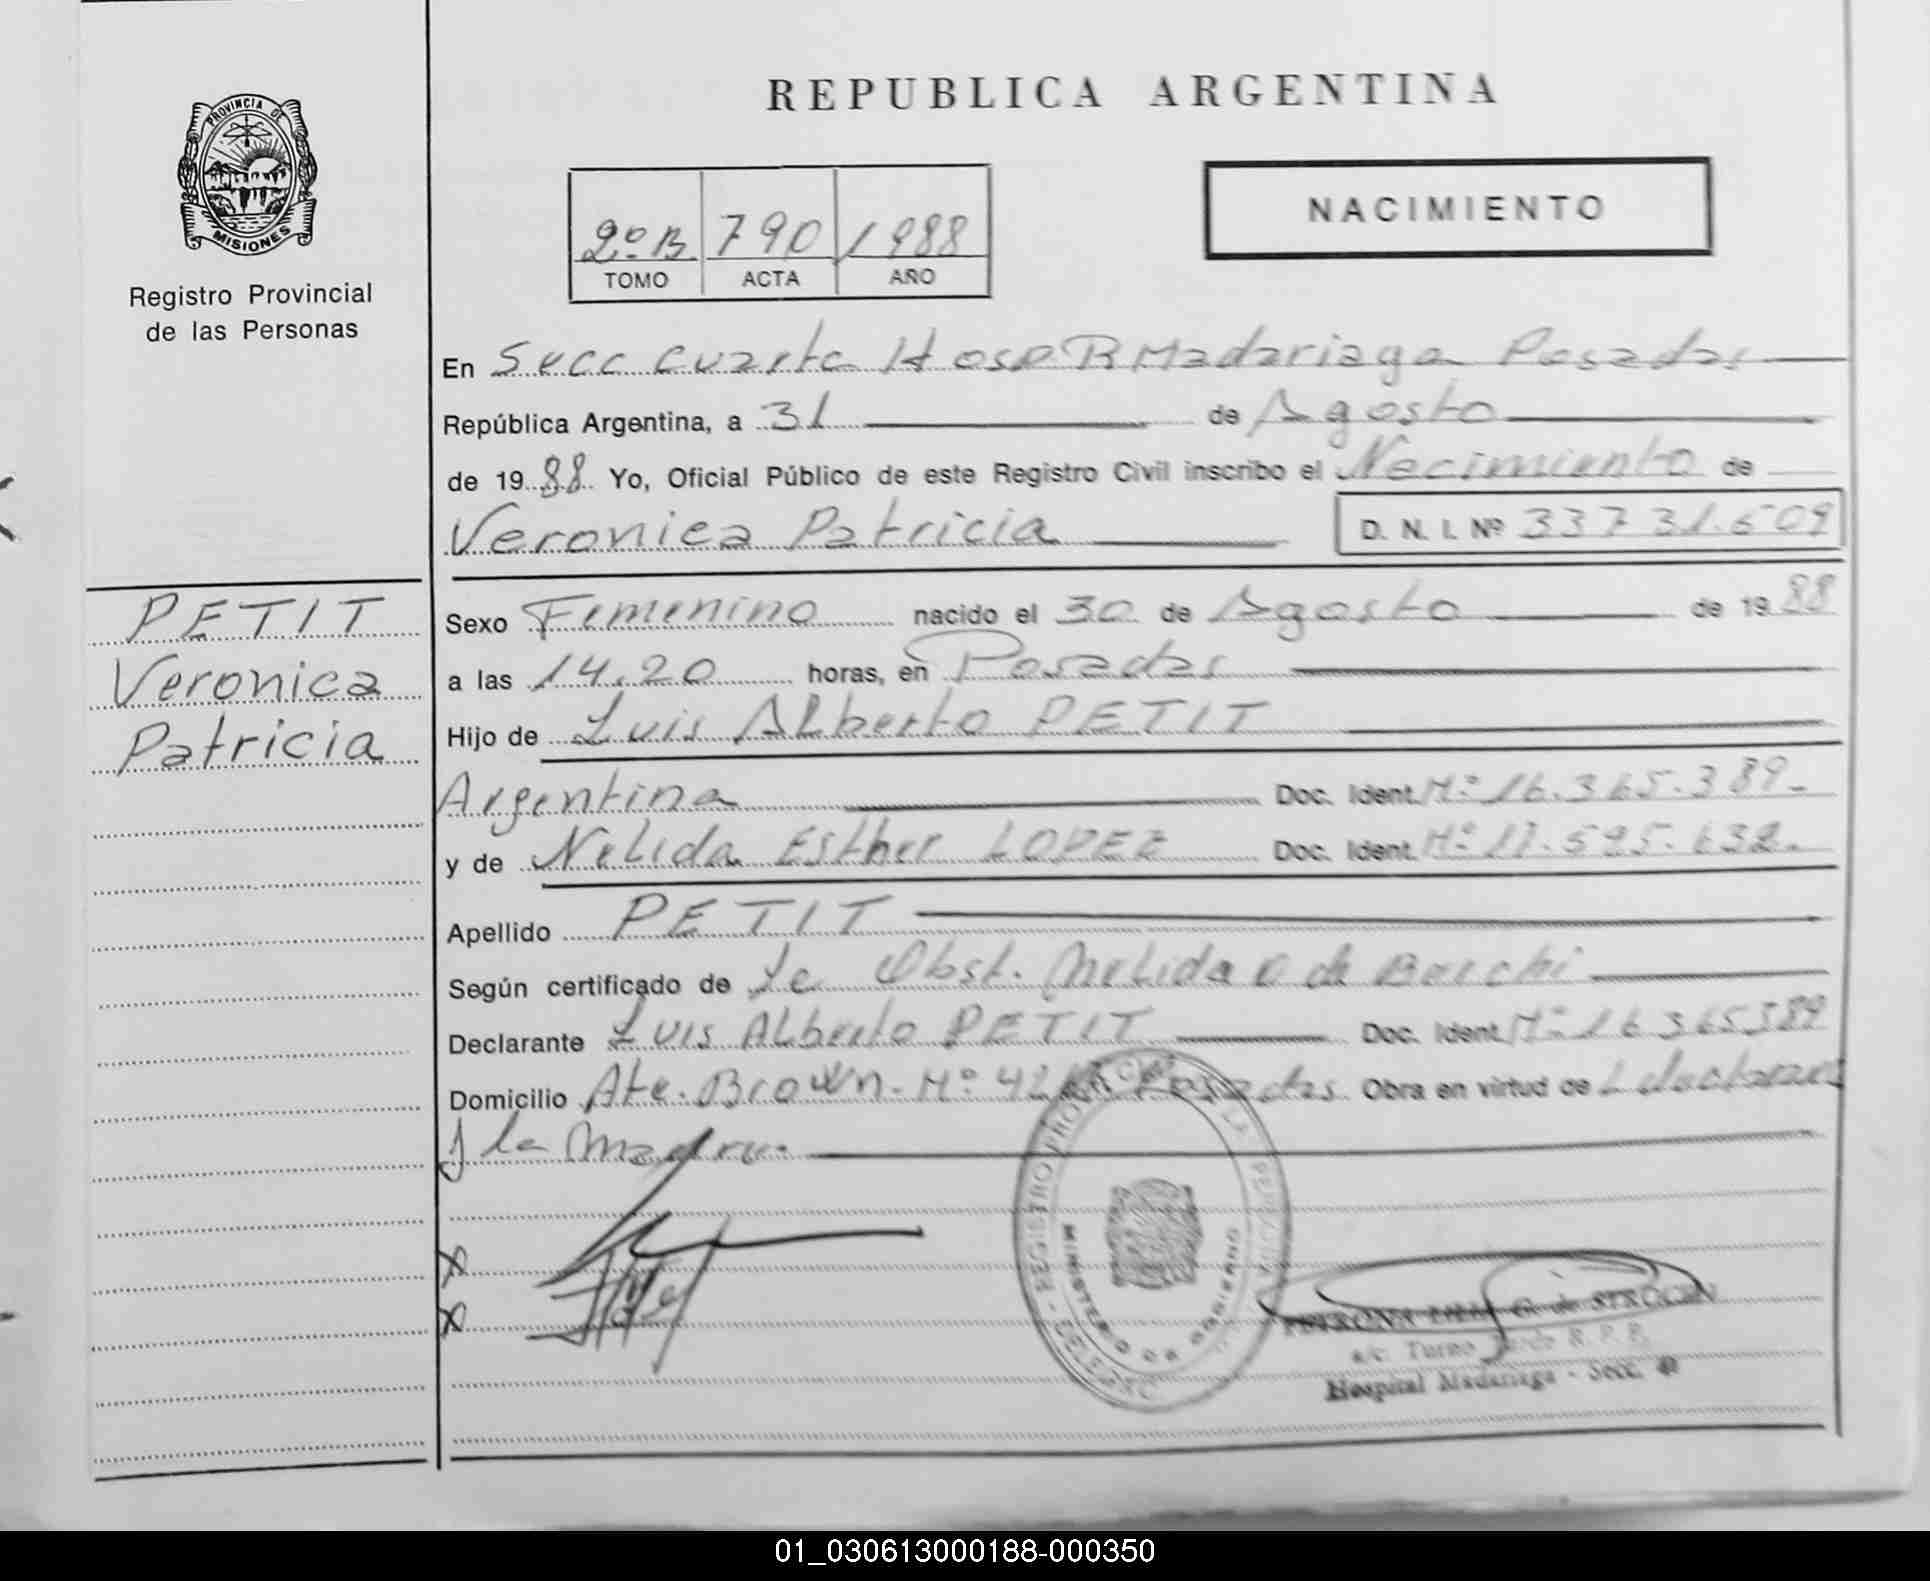 PROVINCIA DE
MISIONES
Registro Provincial
de las Personas
REPUBLICA ARGENTINA
2º B 790 1988
TOMO ACTA AÑO
NACIMIENTO
En Secc cuarta Hosp R Madariaga Posadas
República Argentina, a 31 de Agosto
de 1988 Yo, Oficial Público de este Registro Civil inscribo el Nacimiento de
Veronica Patricia D. N. I. Nº 33731.609
PETIT
Veronica
Patricia
Sexo Femenino nacido el 30 de Agosto de 1988
a las 14.20 horas, en Posadas
Hijo de Luis Alberto PETIT
Argentina Doc. Ident. Nº 16.365.389.-
y de Nelida Esther LOPEZ Doc. Ident. Nº 17.595.632.-
Apellido PETIT
Según certificado de la Obst. Nelida de
Declarante Luis Alberto PETIT Doc. Ident. Nº 16365389
Domicilio Ate. Brown. Nº Posadas. Obra en virtud de
la Madre.-
X
X
MINISTERIO DE GOBIERNO
G. de
a/c. Turno R. P. P.
Hospital Madariaga - Secc. 4ª
01_030613000188-000350